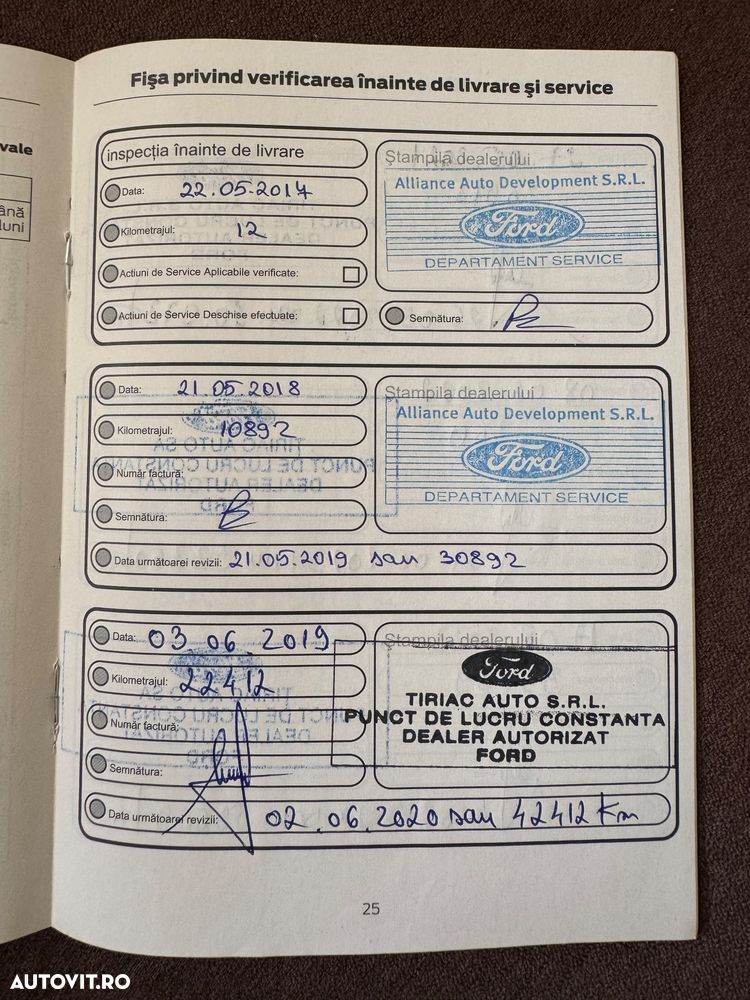 vale
ână
luni
Fișa privind verificarea înainte de livrare și service
inspecția înainte de livrare
Data: 22.05.2017
Kilometrajul: 12
Actiuni de Service Aplicabile verificate:
Actiuni de Service Deschise efectuate:
Ștampila dealerului
Alliance Auto Development S.R.L.
Ford
DEPARTAMENT SERVICE
Semnătura:
Data: 21.05.2018
Kilometrajul: 10892
Număr factură:
Semnătura:
Data următoarei revizii: 21.05.2019 sau 30892
Ștampila dealerului
Alliance Auto Development S.R.L.
Ford
DEPARTAMENT SERVICE
Data: 03.06.2019
Kilometrajul: 22412
Număr factură:
Semnătura:
Data următoarei revizii: 02.06.2020 sau 42412 Km
Ștampila dealerului
Ford
TIRIAC AUTO S.R.L.
PUNCT DE LUCRU CONSTANTA
DEALER AUTORIZAT
FORD
25
AUTOVIT.RO